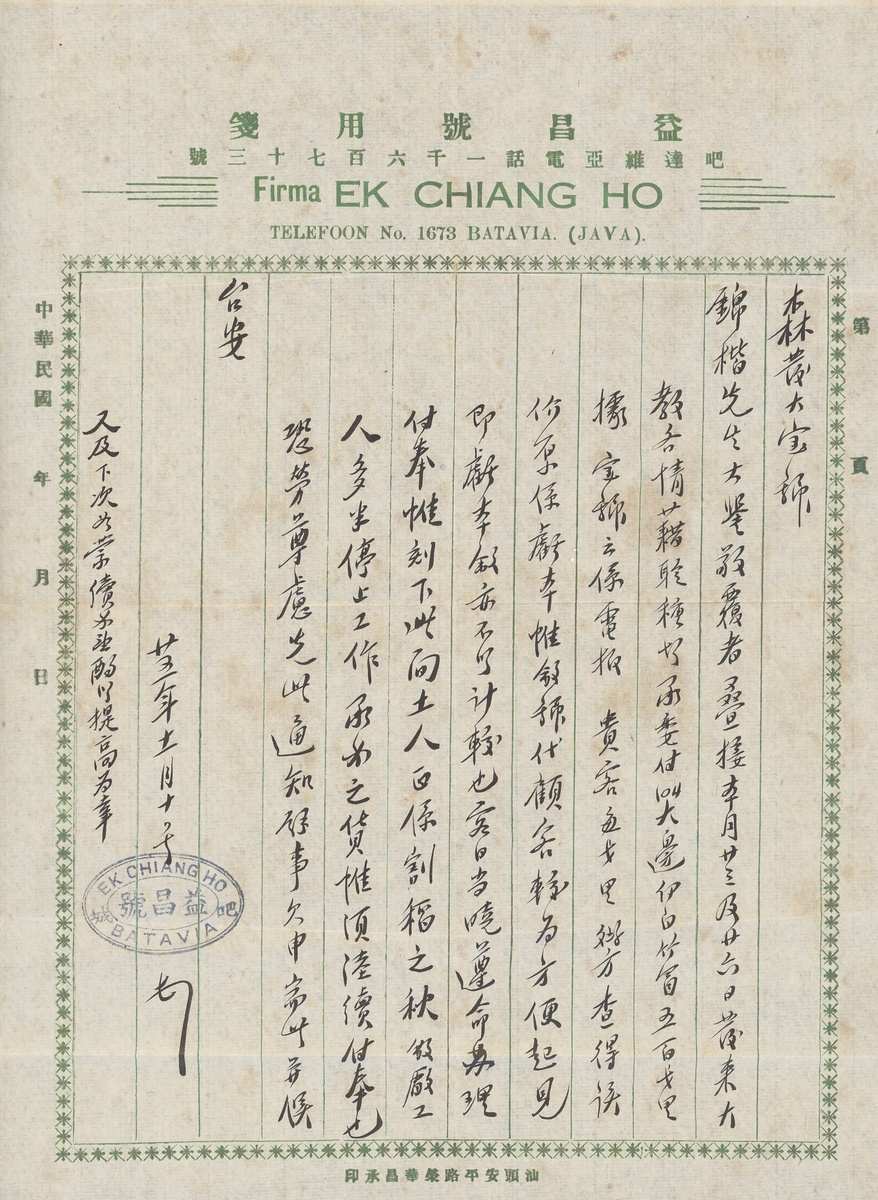 益昌號用箋
吧達維亞電話一千六百七十三號
Firma EK CHIANG HO
TELEFOON No. 1673 BATAVIA. (JAVA).
第 頁
森茂大宝號
錦楷先生大鑒敬覆者疊接本月廿三及廿六日茂来大
教各情藉聆種切承委付叫大邊伊白竹冒五百戈里
據宝號云係電报貴客每戈里 方查得該
价原係虧本惟敝號代顧客輕为方便起見
即虧本敝亦不以計較也客日当曉遵命办理
付奉惟刻下此间土人正係割稻之秋敝廠工
人多半停止工作承办之貨惟須陸續付奉也
恐勞尊慮先此通知餘事欠申耑此并候
台安
廿五年十一月十八号
EK CHIANG HO
吧益昌號
BATAVIA
又及下次如蒙續委酌以提高为幸
中華民國 年 月 日
汕頭安平路榮華昌承印